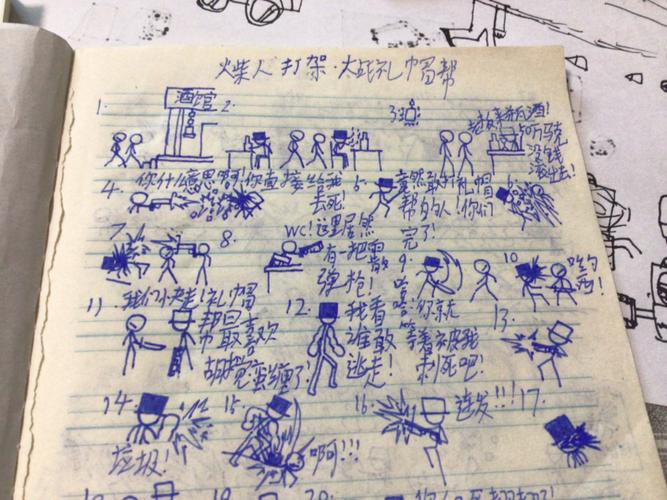 火柴人打架·大战礼帽帮
1.
酒馆
2.
3.
老板来瓶酒！
50马克
没钱
滚出去！
4.你什么意思啊！你直接给我
去死！
5.竟然敢打礼帽
帮的人！你们
完了！
6.
7.
8.
WC！这里居然
有一把霰
弹枪！
9.
嘻嘻！你就
等着被我
刺死吧！
10.
11.我们快走！礼帽
帮最喜欢
胡搅蛮缠了
12.我看
谁敢
逃走！
13.
14.
垃圾！
15.
啊！！！
16.
连发！！！
17.
18
19
20.